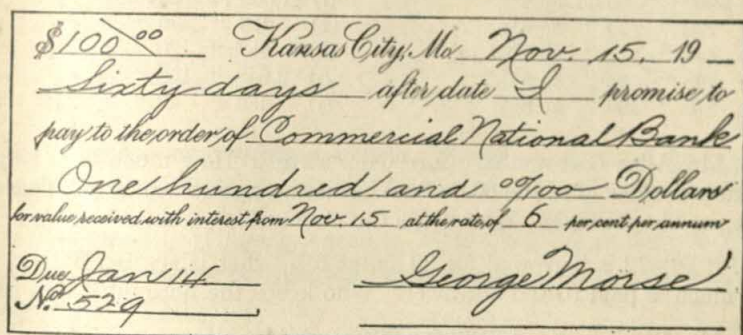 $100 00 Kansas City, Mo Nov. 15. 19
Sixty days after date I promise to
pay to the order of Commercial National Bank
One hundred and 00/100 Dollars
for value received with interest from Nov. 15 at the rate of 6 per cent per annum
Due Jan 14 George Morse
No. 529